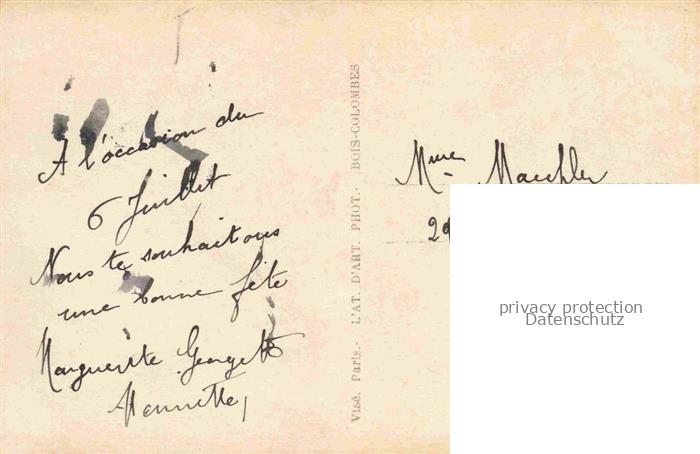 A l'occasion du
6 Juillet
Nous te souhaitons
une bonne fête
Marguerite Georgette
Henriette
Visé. Paris.- L'AT. D'ART. PHOT.- BOIS-COLOMBES
Mme Maechler
privacy protection
Datenschutz